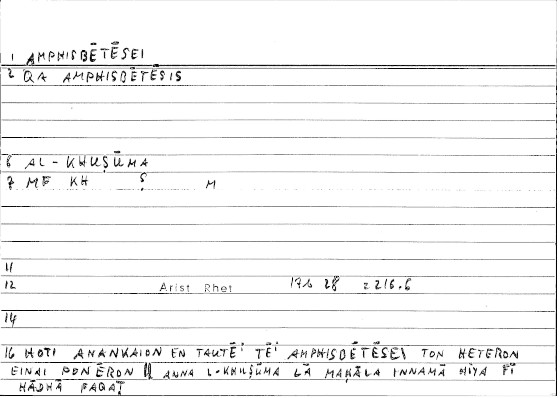 1 AMPHISBĒTĒSEI
2 QA AMPHISBĒTĒSIS
6 AL-KHUṢŪMA
7 MF KH Ṣ M
11
12 Arist Rhet 17b 28 = 216.6
14
16 HOTI ANANKAION EN TAUTĒⁱ TĒⁱ AMPHISBĒTĒSEI TON HETERON
EINAI PONĒRON || ANNA L-KHUṢŪMA LĀ MAḤĀLA INNAMĀ HIYA FĪ
HĀDHĀ FAQAṬ